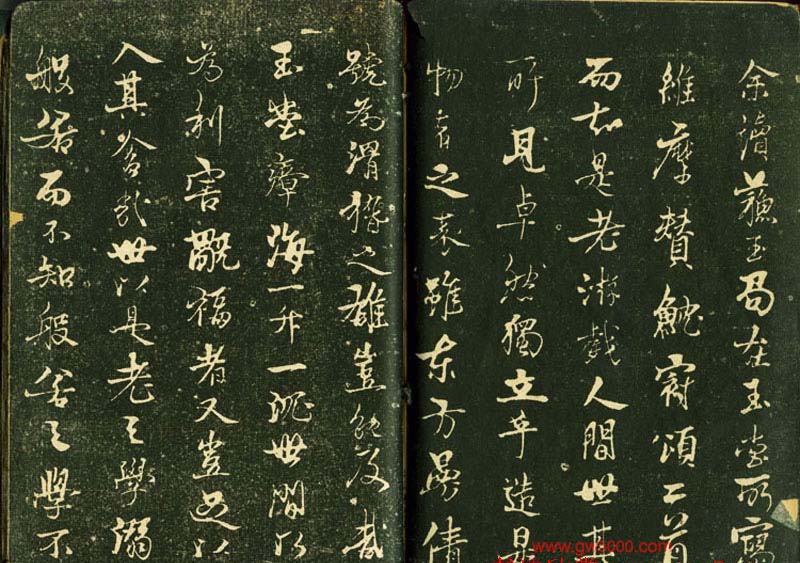 余讀蘇玉局在玉堂所寫
維摩贊魷冠頌二首
而知是老游戲人間世其
所見卓然獨立乎造
物者之表雖東方曼倩
號為滑稽之雄豈能及哉
玉堂瘴海一升一沉世間所
為利害福者又豈足以
入其舍哉世以是老之學溺
般若而不知般若之學不
www.gw5000.com